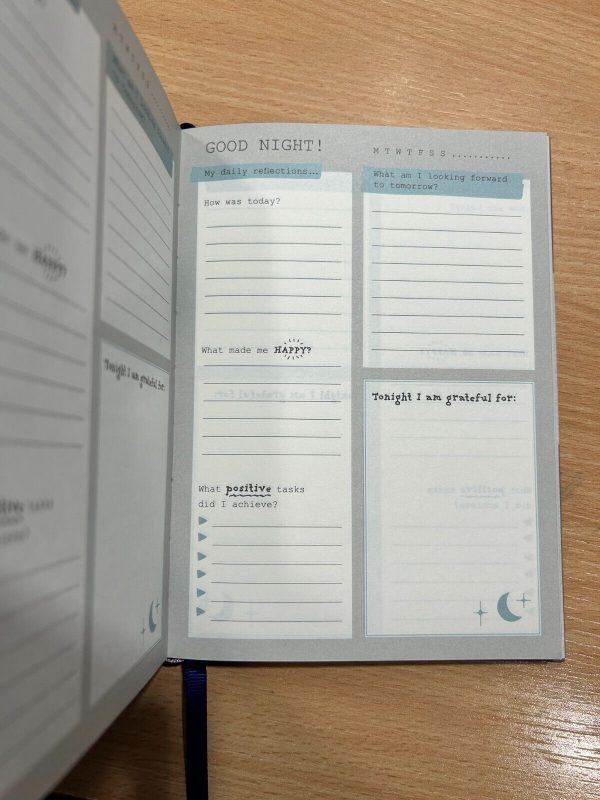 GOOD NIGHT!
M T W T F S S ...........
My daily reflections...
How was today?
What made me HAPPY?
What positive tasks
did I achieve?
What am I looking forward
to tomorrow?
Tonight I am grateful for:
HAPPY
Tonight I am grateful for:
tasks